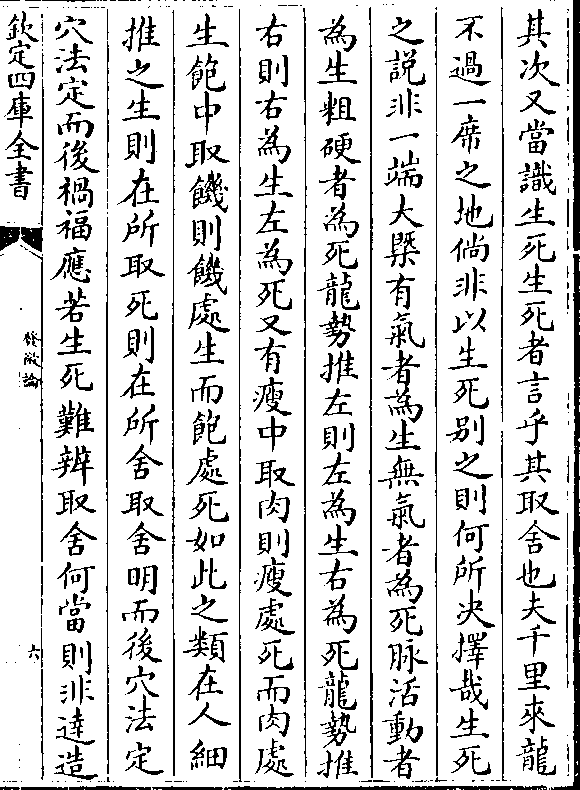 其次又當識生死生死者言乎其取舍也夫千里來龍
不過一席之地倘非以生死别之則何所决擇哉生死
之説非一端大槩有氣者為生無氣者為死脉活動者
為生粗硬者為死龍勢推左則左為生右為死龍勢推
右則右為生左為死又有瘦中取肉則瘦處死而肉處
生飽中取饑則饑處生而飽處死如此之類在人細
推之生則在所取死則在所舍取舍明而後穴法定
穴法定而後禍福應若生死難辨取舍何當則非達造
欽定四庫全書
發微論
六